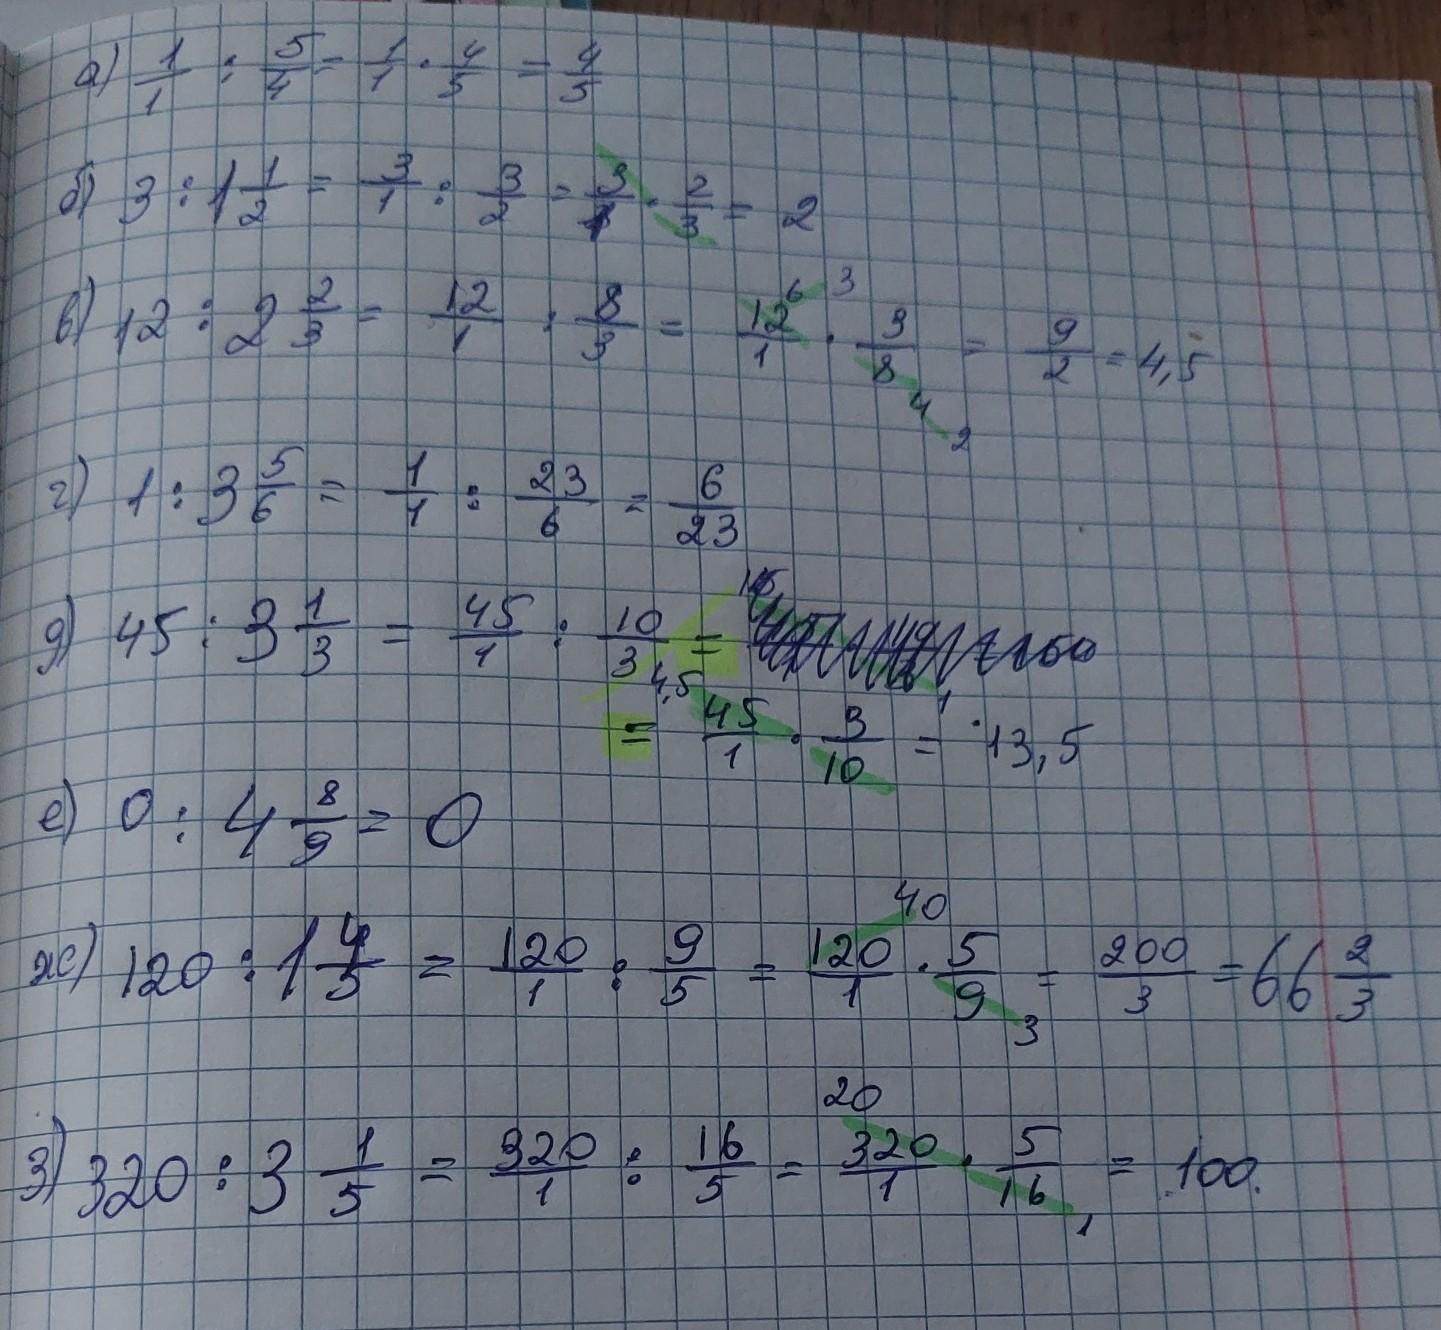 а) 1/1 : 5/4 = 1/1 · 4/5 = 4/5
б) 3 : 1 1/2 = 3/1 : 3/2 = 3/1 · 2/3 = 2
6 3
в) 12 : 2 2/3 = 12/1 : 8/3 = 12/1 · 3/8 = 9/2 = 4,5
4 2
г) 1 : 3 5/6 = 1/1 : 23/6 = 6/23
д) 45 : 3 1/3 = 45/1 : 10/3 =
4,5 1
= 45/1 · 3/10 = 13,5
е) 0 : 4 8/9 = 0
40
ж) 120 : 1 4/5 = 120/1 : 9/5 = 120/1 · 5/9 = 200/3 = 66 2/3
3
20
з) 320 : 3 1/5 = 320/1 : 16/5 = 320/1 · 5/16 = 100.
1